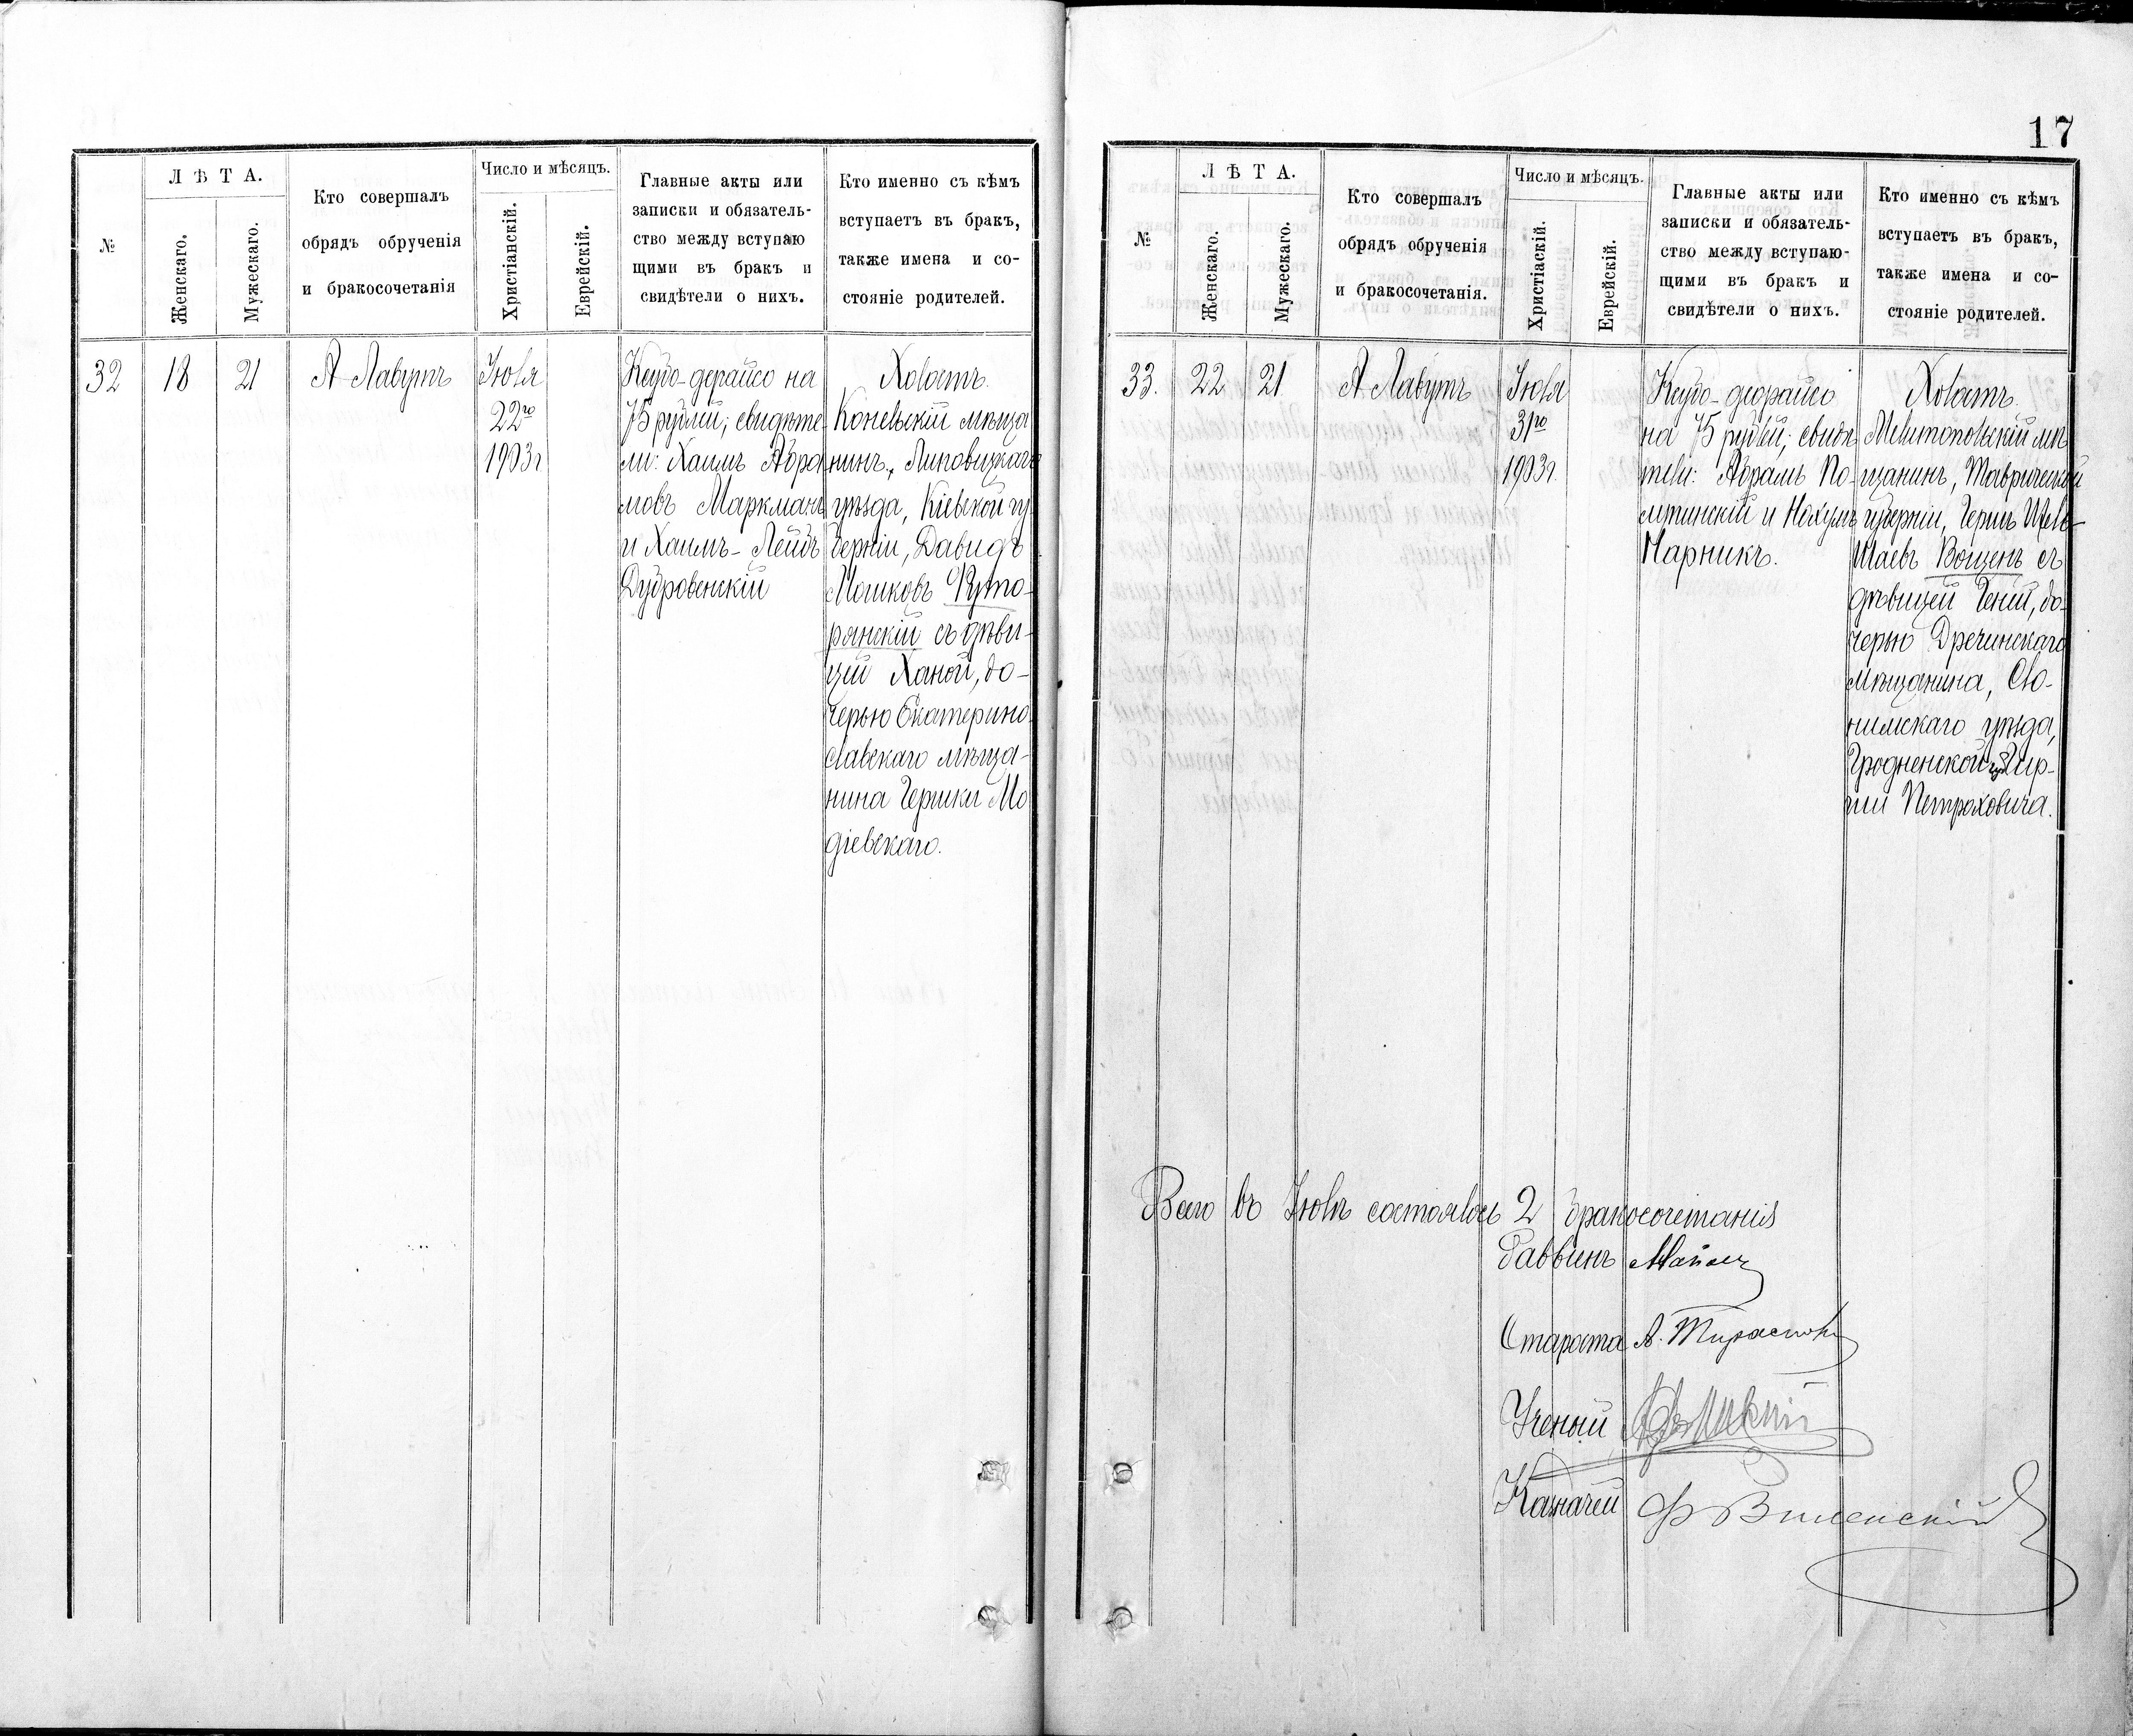 №
ЛѢТА.
Женскаго.
Мужескаго.
Кто совершалъ
обрядъ обрученія
и бракосочетанія
Число и мѣсяцъ.
Христіанскій.
Еврейскій.
Главные акты или
записки и обязатель-
ство между вступаю
щими въ бракъ и
свидѣтели о нихъ.
Кто именно съ кѣмъ
вступаетъ въ бракъ,
также имена и со-
стояніе родителей.
32
18
21
А Лавутъ
Іюля
22го
1903г
Ксубо-дерайсо на
75 рублей; свидѣте
ли: Хаимъ Абра
мовъ Маркманъ
и Хаимъ-Лейбъ
Дубровенскій
Холостъ.
Конельскій мѣща
нинъ, Липовецкаго
уѣзда, Кіевской гу
берніи, Давидъ
Мошковъ Руто-
рянскій съ дѣви-
цей Ханой, до-
черью Екатерино
славскаго мѣща-
нина Гершки Мо
діевскаго.
17
№
ЛѢТА.
Женскаго.
Мужескаго.
Кто совершалъ
обрядъ обрученія
и бракосочетанія.
Число и мѣсяцъ.
Христіаскій.
Еврейскій.
Главные акты или
записки и обязатель-
ство между вступаю-
щими въ бракъ и
свидѣтели о нихъ.
Кто именно съ кѣмъ
вступаетъ въ бракъ,
также имена и со-
стояніе родителей.
33.
22
21
А Лавутъ
Іюля
31го
1903г.
Ксубо-деорайсо
на 75 рублей; свидѣ
тели: Абрамъ По-
и Нохумъ
Парникъ.
Холостъ.
Мелитопольскій мѣ
щанинъ, Таврической
губерніи, Герцъ
Шаевъ Вощенъ съ
дѣвицей Геней, до-
черью Дречинскаго
мѣщанина, Сло-
нимскаго уѣзда,
Гродненской губ. Гир-
ши Петраховича.
Всего въ Іюлѣ состоялось 2 бракосочетанія
Раввинъ
Староста А. Тирасполь
Ученый
Казначей Ф Виленскій